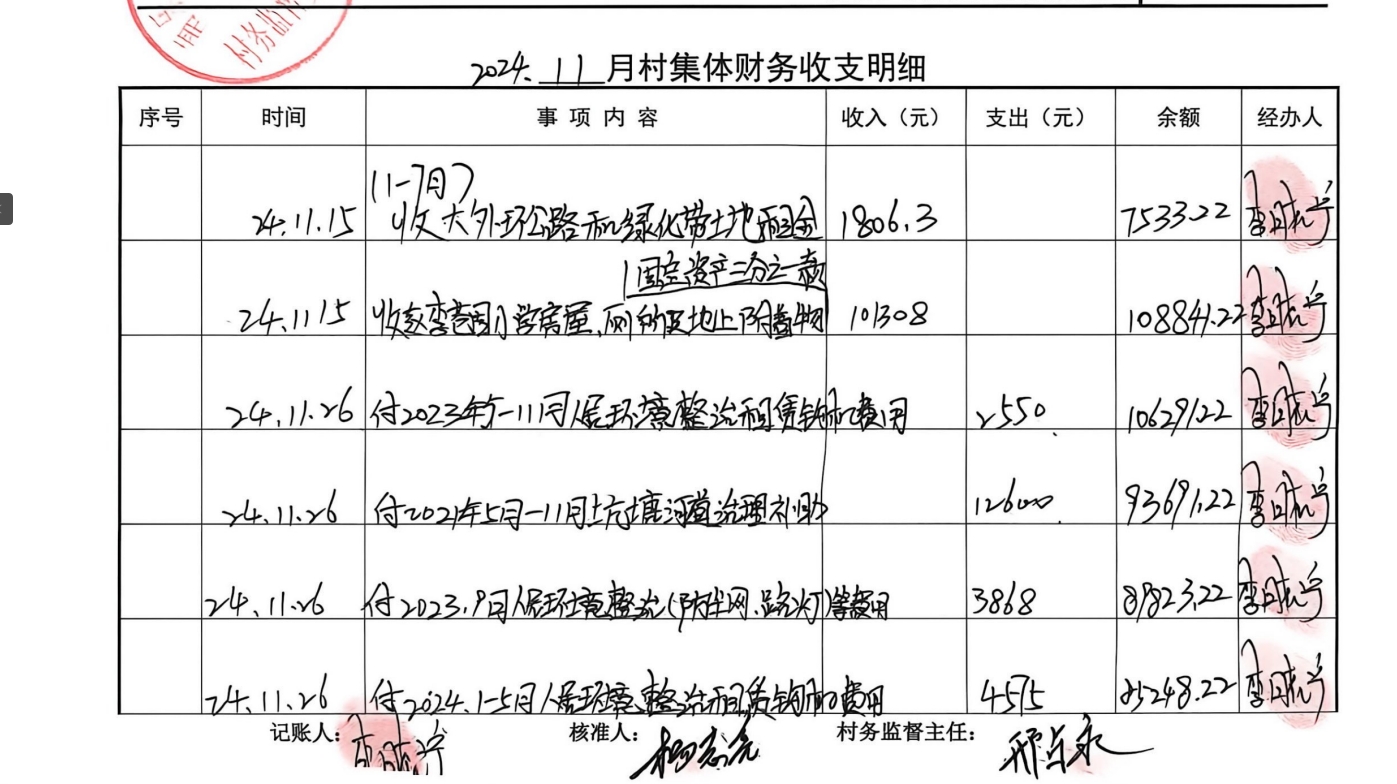 村务监
2024. 11 月村集体财务收支明细
序号 时间 事项内容 收入（元） 支出（元） 余额 经办人
(1-7月)
24.11.15 收大外环公路和绿化带土地租金 1806.3 7533.22
固定资产三分之一款
24.11.15 收 小学房屋、厕所及地上附着物 101308 108841.22
24.11.26 付2023年5-11月人居环境整治租赁钩机费用 2550 106291.22
24.11.26 付2021年5月-11月坑塘河道治理补助 12600 93691.22
24.11.26 付2023.9月人居环境整治(防尘网、路灯)等费用 3868 89823.22
24.11.26 付2024.1-5月人居环境整治租赁钩机费用 4575 85248.22
记账人： 核准人： 村务监督主任：